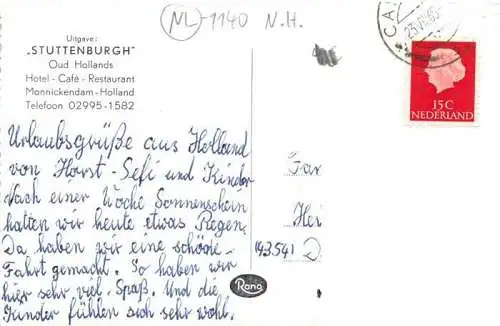 NL-1140 N.H.
Uitgave:
„STUTTENBURGH"
Oud Hollands
Hotel - Café - Restaurant
Monnickendam - Holland
Telefoon 02995-1582
CA
15 C
NEDERLAND
Urlaubsgrüße aus Holland
von Horst - Sefi und Kinder
Nach einer Woche Sonnenschein
hatten wir heute etwas Regen.
Da haben wir eine schöne
Fahrt gemacht. So haben wir
hier sehr viel Spaß. Und die
Kinder fühlen sich sehr wohl.
Fam
Hei
143.541 D
Rona